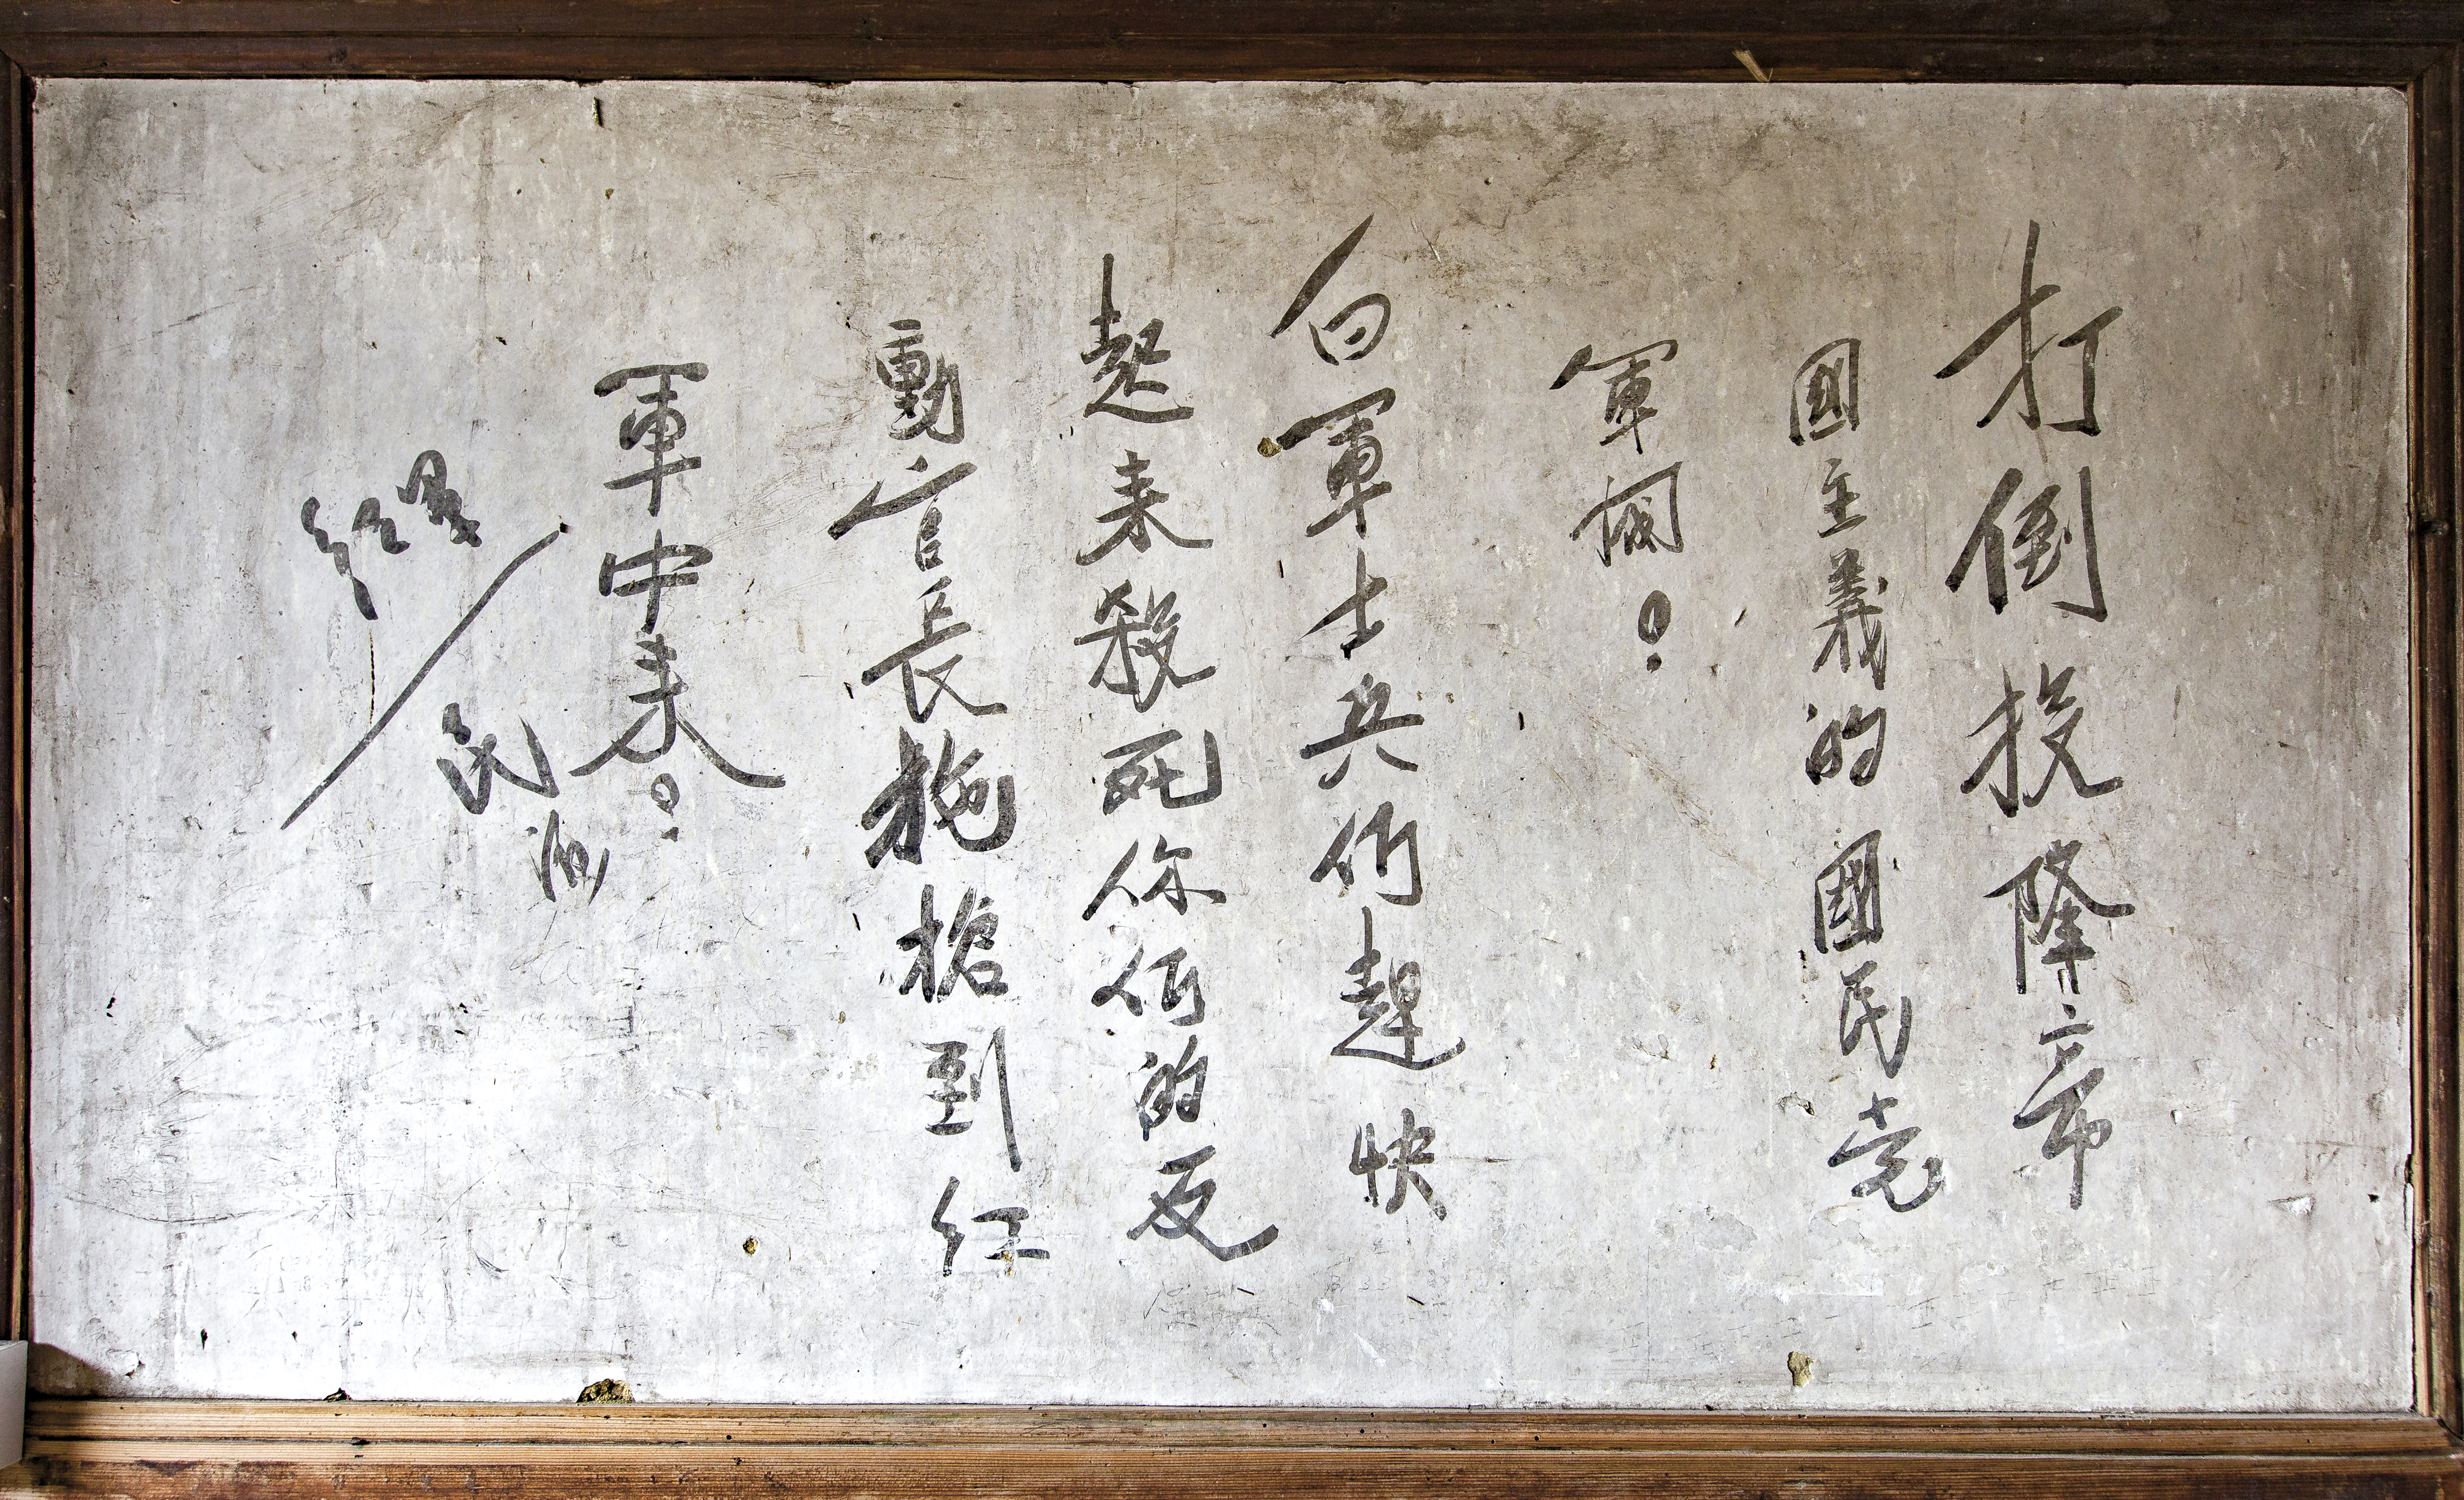 打倒投降帝
國主義的國民党
軍閥!
白軍士兵们趕快
起来殺死你们的反
動官長拖槍到红
軍中来!
民